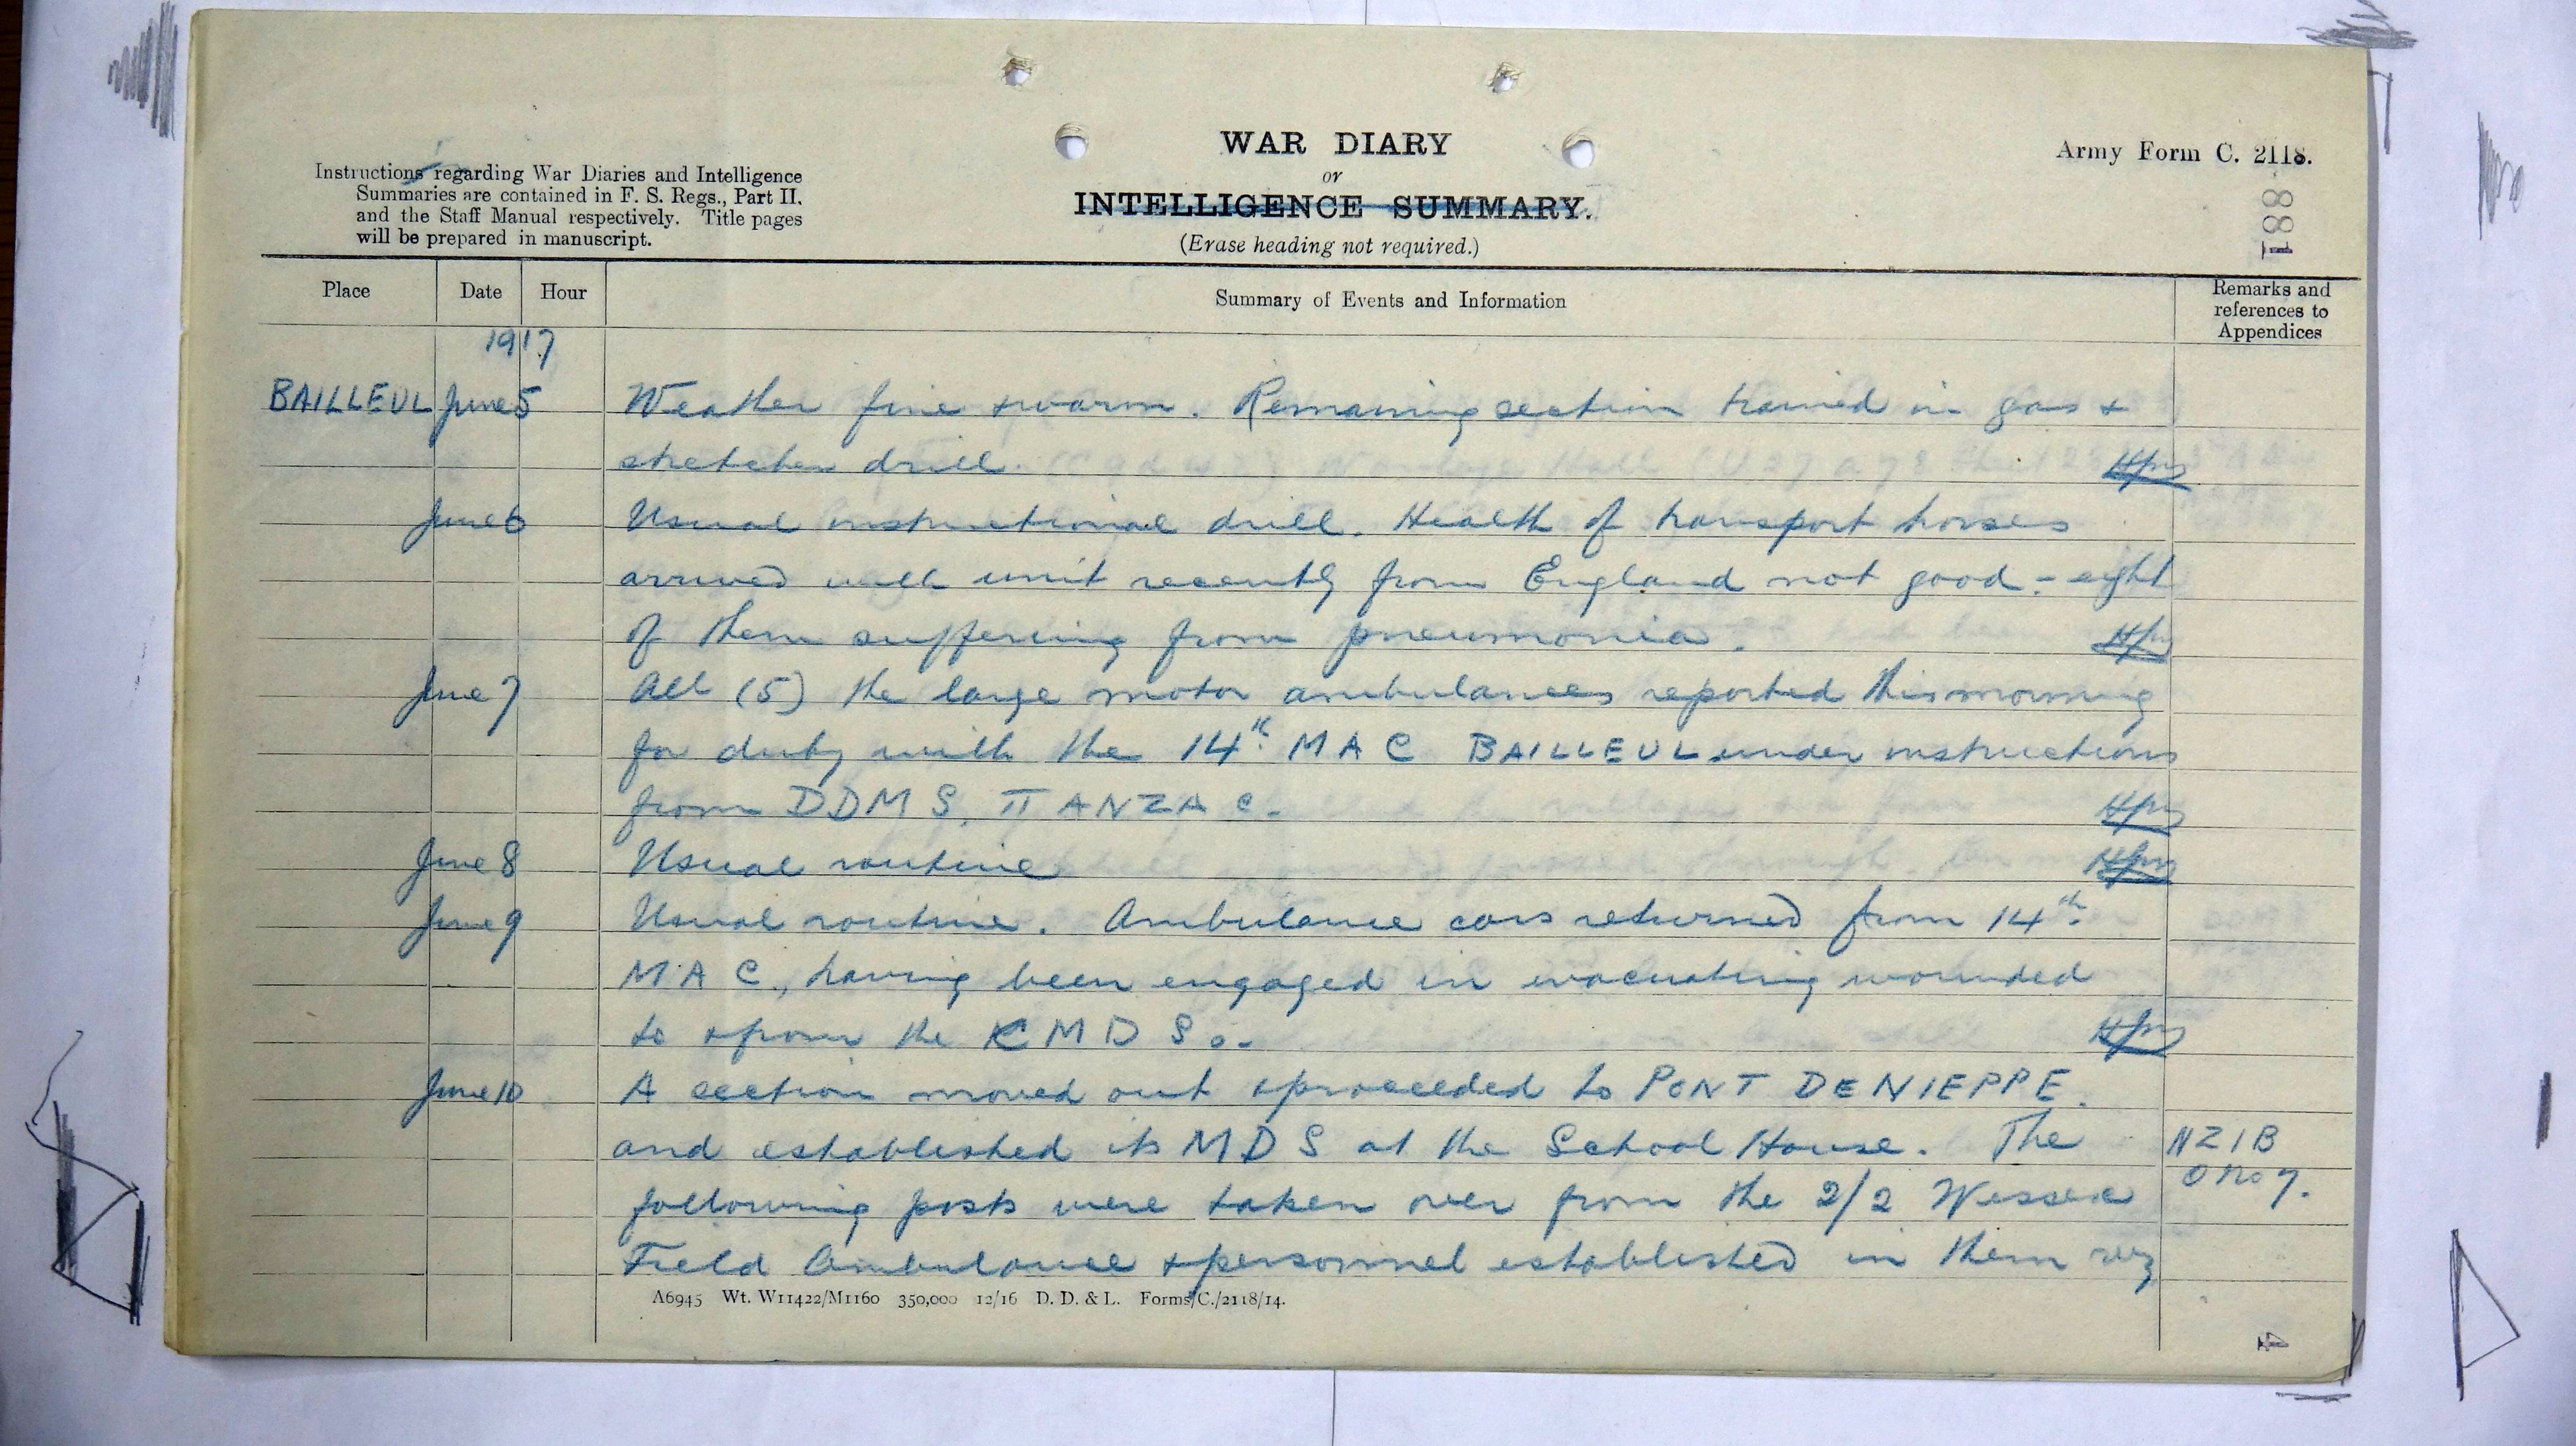 WAR DIARY
or
INTELLIGENCE SUMMARY.
(Erase heading not required.)
Army Form C. 2118.
Instructions regarding War Diaries and Intelligence
Summaries are contained in F. S. Regs., Part II.
and the Staff Manual respectively. Title pages
will be prepared in manuscript.
188
Place Date Hour Summary of Events and Information Remarks and references to Appendices
1917
BAILLEUL June 5 Weather fine & warm. Remaining section trained in gas &
stretcher drill.
June 6 Usual instructional drill. Health of transport horses
arrived with unit recently from England not good - eight
of them suffering from pneumonia.
June 7 All (5) the large motor ambulances reported this morning
for duty with the 14th MAC BAILLEUL under instructions
from DDMS, II ANZAC.
June 8 Usual routine
June 9 Usual routine. Ambulance cars returned from 14th
MAC, having been engaged in evacuating wounded
to & from the CMDSs.
June 10 A section moved out & proceeded to PONT DE NIEPPE.
and established its MDS at the School House. The NZIB
following posts were taken over from the 2/2 Wessex O No 7.
Field Ambulance & personnel established in them viz
A6945 Wt. W11422/M1160 350,000 12/16 D. D. & L. Forms/C./2118/14.
4